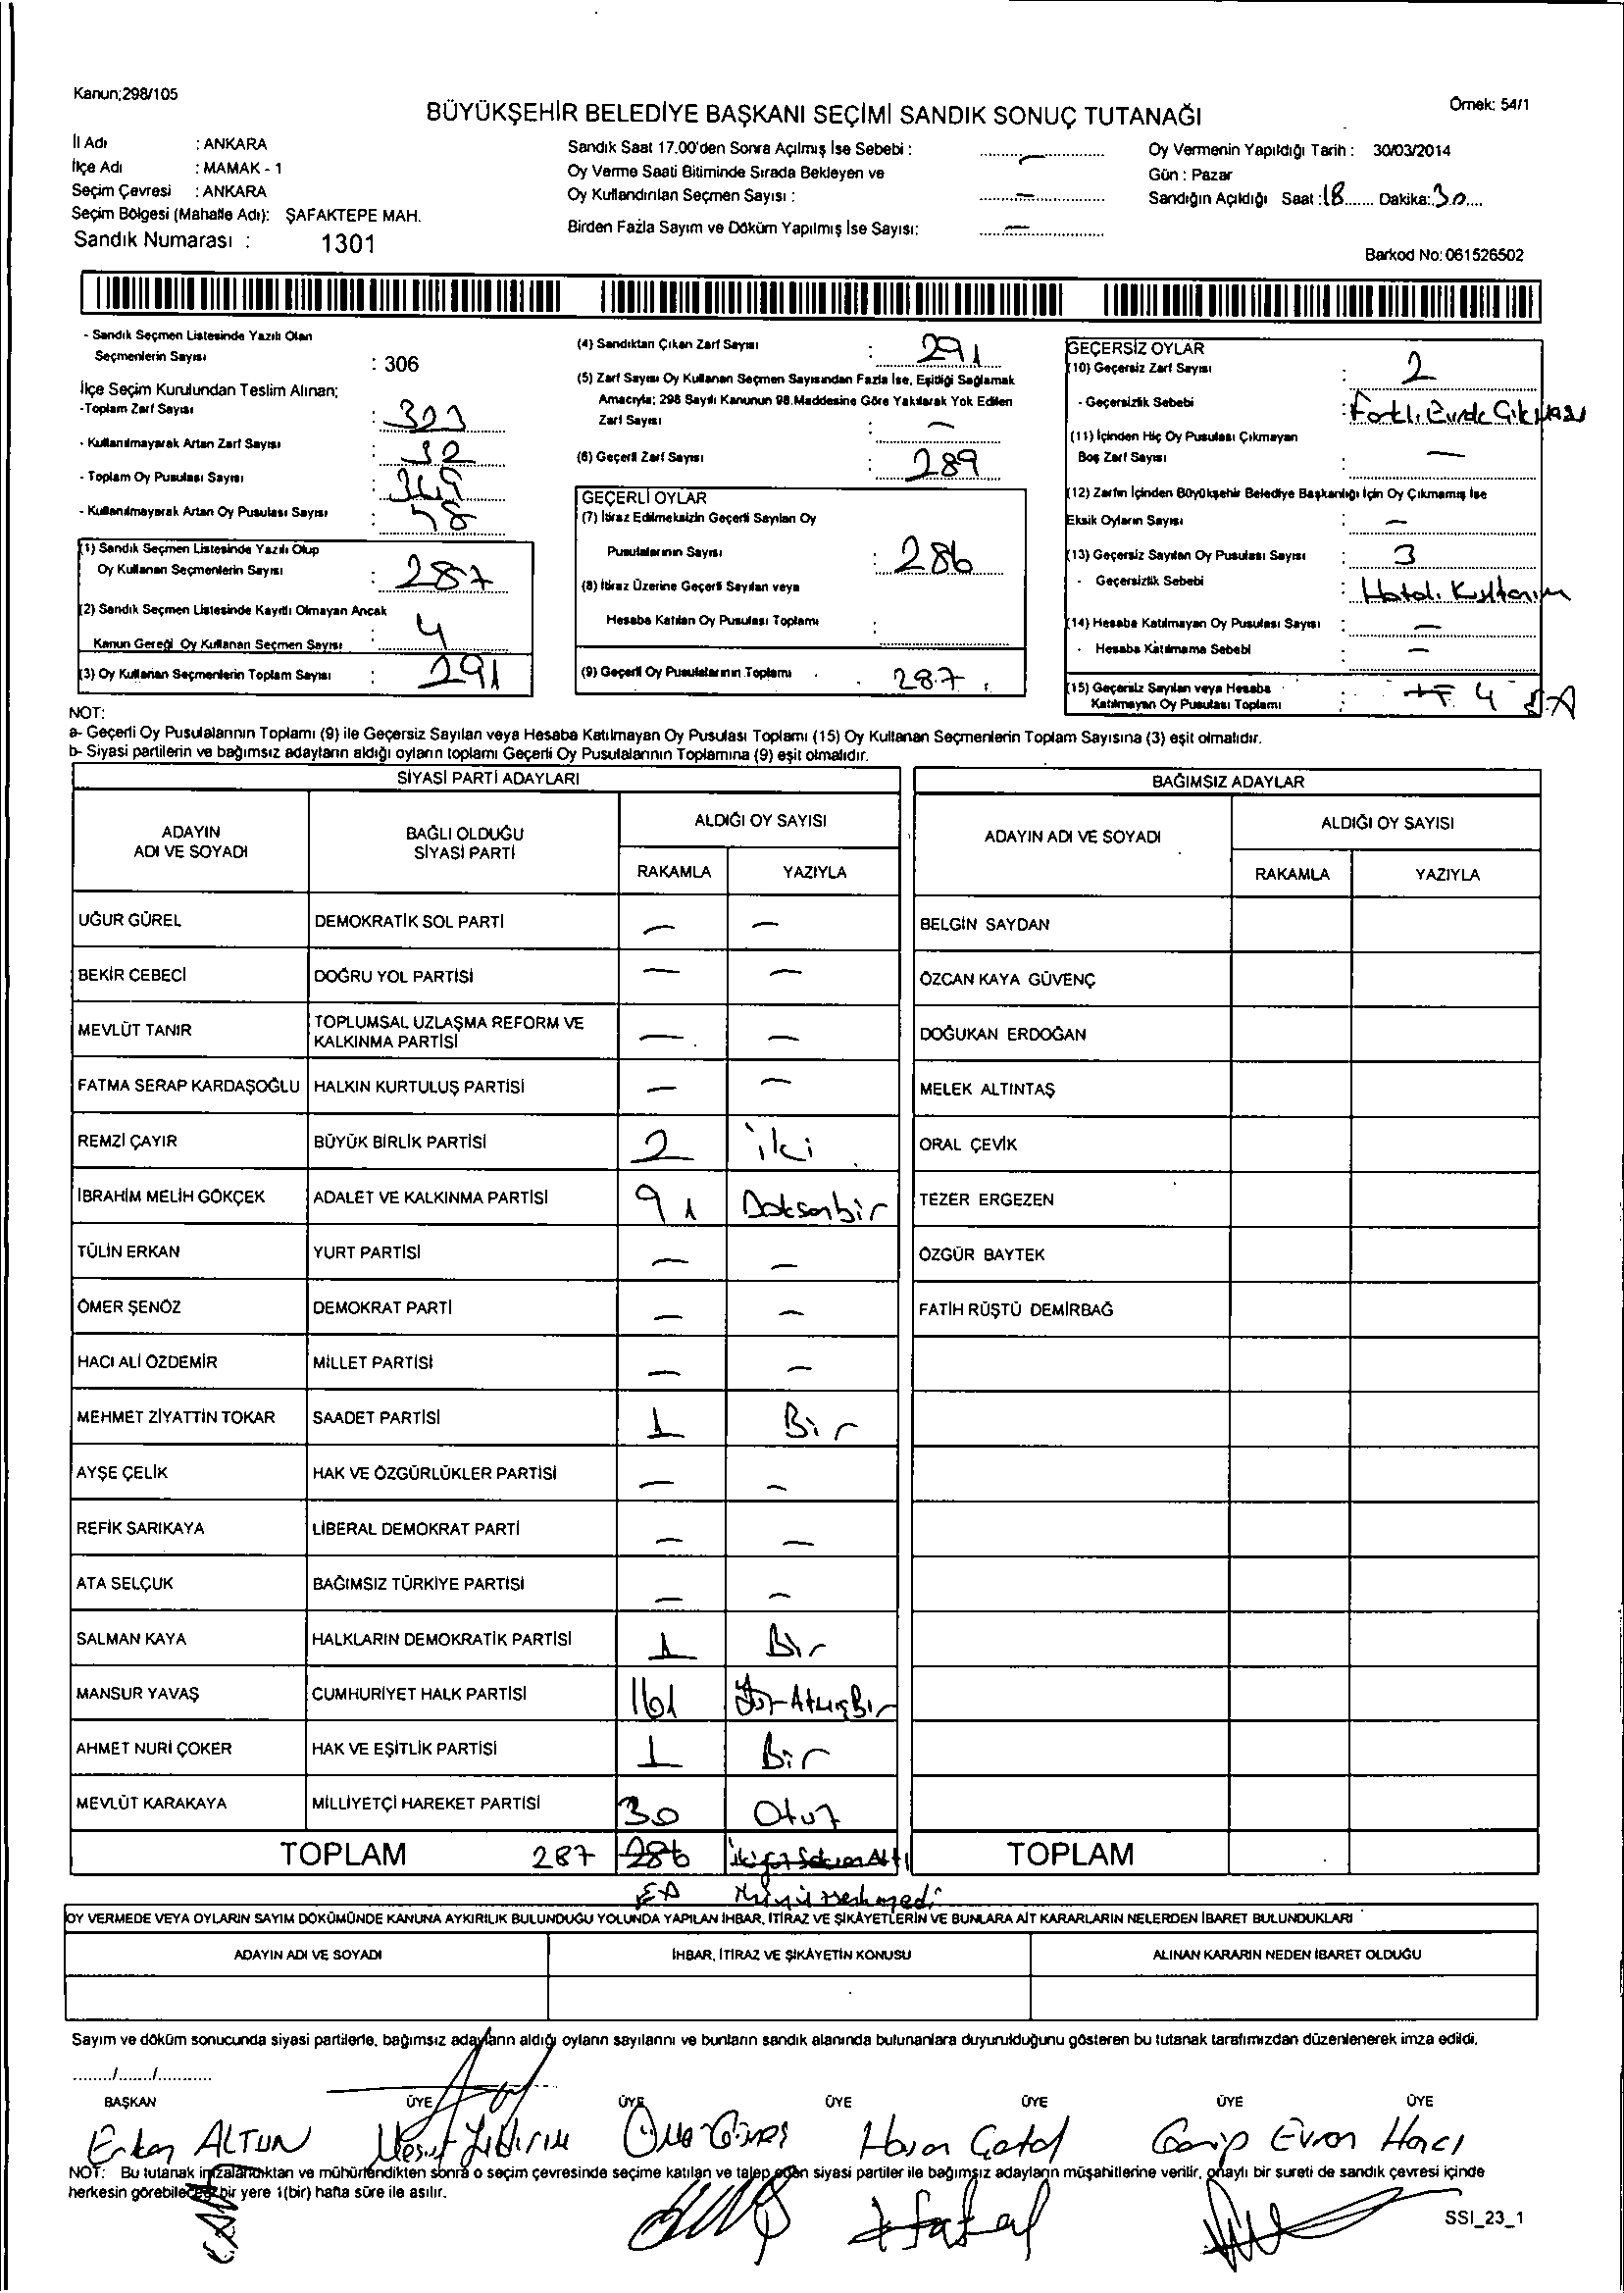 Kanun;298/105
BÜYÜKŞEHİR BELEDİYE BAŞKANI SEÇİMİ SANDIK SONUÇ TUTANAĞI
Örnek: 54/1
İl Adı : ANKARA
İlçe Adı : MAMAK - 1
Seçim Çevresi : ANKARA
Seçim Bölgesi (Mahalle Adı): ŞAFAKTEPE MAH.
Sandık Numarası : 1301
Sandık Saat 17.00'den Sonra Açılmış İse Sebebi : —
Oy Verme Saati Bitiminde Sırada Bekleyen ve
Oy Kullandırılan Seçmen Sayısı : —
Birden Fazla Sayım ve Döküm Yapılmış İse Sayısı: —
Oy Vermenin Yapıldığı Tarih : 30/03/2014
Gün : Pazar
Sandığın Açıldığı Saat :18 Dakika:30
Barkod No: 061526502
- Sandık Seçmen Listesinde Yazılı Olan
Seçmenlerin Sayısı : 306
İlçe Seçim Kurulundan Teslim Alınan;
-Toplam Zarf Sayısı : 323
- Kullanılmayarak Artan Zarf Sayısı : 32
- Toplam Oy Pusulası Sayısı : 349
- Kullanılmayarak Artan Oy Pusulası Sayısı : 58
(1) Sandık Seçmen Listesinde Yazılı Olup
Oy Kullanan Seçmenlerin Sayısı : 287
(2) Sandık Seçmen Listesinde Kayıtlı Olmayan Ancak
Kanun Gereği Oy Kullanan Seçmen Sayısı : 4
(3) Oy Kullanan Seçmenlerin Toplam Sayısı : 291
(4) Sandıktan Çıkan Zarf Sayısı : 291
(5) Zarf Sayısı Oy Kullanan Seçmen Sayısından Fazla İse, Eşitliği Sağlamak
Amacıyla; 298 Sayılı Kanunun 98.Maddesine Göre Yakılarak Yok Edilen
Zarf Sayısı : —
(6) Geçerli Zarf Sayısı : 289
GEÇERLİ OYLAR
(7) İtiraz Edilmeksizin Geçerli Sayılan Oy
Pusulalarının Sayısı : 286
(8) İtiraz Üzerine Geçerli Sayılan veya
Hesaba Katılan Oy Pusulası Toplamı :
(9) Geçerli Oy Pusulalarının Toplamı : 287
GEÇERSİZ OYLAR
(10) Geçersiz Zarf Sayısı : 2
- Geçersizlik Sebebi : Farklı Evrde Çıkması
(11) İçinden Hiç Oy Pusulası Çıkmayan
Boş Zarf Sayısı : —
(12) Zarfın İçinden Büyükşehir Belediye Başkanlığı İçin Oy Çıkmamış İse
Eksik Oyların Sayısı : —
(13) Geçersiz Sayılan Oy Pusulası Sayısı : 3
- Geçersizlik Sebebi : Hatalı Kullanım
(14) Hesaba Katılmayan Oy Pusulası Sayısı : —
- Hesaba Katılmama Sebebi : —
(15) Geçersiz Sayılan veya Hesaba
Katılmayan Oy Pusulası Toplamı : 4 EA
NOT:
a- Geçerli Oy Pusulalarının Toplamı (9) ile Geçersiz Sayılan veya Hesaba Katılmayan Oy Pusulası Toplamı (15) Oy Kullanan Seçmenlerin Toplam Sayısına (3) eşit olmalıdır.
b- Siyasi partilerin ve bağımsız adayların aldığı oyların toplamı Geçerli Oy Pusulalarının Toplamına (9) eşit olmalıdır.
SİYASİ PARTİ ADAYLARI
ADAYIN ADI VE SOYADI BAĞLI OLDUĞU SİYASİ PARTİ ALDIĞI OY SAYISI
RAKAMLA YAZIYLA
UĞUR GÜREL DEMOKRATİK SOL PARTİ — —
BEKİR CEBECİ DOĞRU YOL PARTİSİ — —
MEVLÜT TANIR TOPLUMSAL UZLAŞMA REFORM VE KALKINMA PARTİSİ — —
FATMA SERAP KARDAŞOĞLU HALKIN KURTULUŞ PARTİSİ — —
REMZİ ÇAYIR BÜYÜK BİRLİK PARTİSİ 2 iki
İBRAHİM MELİH GÖKÇEK ADALET VE KALKINMA PARTİSİ 91 Doksanbir
TÜLİN ERKAN YURT PARTİSİ — —
ÖMER ŞENÖZ DEMOKRAT PARTİ — —
HACI ALİ ÖZDEMİR MİLLET PARTİSİ — —
MEHMET ZİYATTİN TOKAR SAADET PARTİSİ 1 Bir
AYŞE ÇELİK HAK VE ÖZGÜRLÜKLER PARTİSİ — —
REFİK SARIKAYA LİBERAL DEMOKRAT PARTİ — —
ATA SELÇUK BAĞIMSIZ TÜRKİYE PARTİSİ — —
SALMAN KAYA HALKLARIN DEMOKRATİK PARTİSİ 1 Bir
MANSUR YAVAŞ CUMHURİYET HALK PARTİSİ 161 Yüz-AtmışBir
AHMET NURİ ÇOKER HAK VE EŞİTLİK PARTİSİ 1 Bir
MEVLÜT KARAKAYA MİLLİYETÇİ HAREKET PARTİSİ 30 Otuz
TOPLAM 287 286 ikiyüz Seksen Altı
EA
BAĞIMSIZ ADAYLAR
ADAYIN ADI VE SOYADI ALDIĞI OY SAYISI
RAKAMLA YAZIYLA
BELGİN SAYDAN
ÖZCAN KAYA GÜVENÇ
DOĞUKAN ERDOĞAN
MELEK ALTINTAŞ
ORAL ÇEVİK
TEZER ERGEZEN
ÖZGÜR BAYTEK
FATİH RÜŞTÜ DEMİRBAĞ
TOPLAM
OY VERMEDE VEYA OYLARIN SAYIM DÖKÜMÜNDE KANUNA AYKIRILIK BULUNDUĞU YOLUNDA YAPILAN İHBAR, İTİRAZ VE ŞİKAYETLERİN VE BUNLARA AİT KARARLARIN NELERDEN İBARET BULUNDUKLARI
ADAYIN ADI VE SOYADI İHBAR, İTİRAZ VE ŞİKAYETİN KONUSU ALINAN KARARIN NEDEN İBARET OLDUĞU
Sayım ve döküm sonucunda siyasi partilerle, bağımsız adayların aldığı oyların sayılarını ve bunların sandık alanında bulunanlara duyurulduğunu gösteren bu tutanak tarafımızdan düzenlenerek imza edildi.
......../......../...........
BAŞKAN ÜYE ÜYE ÜYE ÜYE ÜYE ÜYE
Erkan ALTUN Mesut Yıldırım Ömer Güneş Hasan Çatal Garip Evran Hacı
NOT: Bu tutanak imzalandıktan ve mühürlendikten sonra o seçim çevresinde seçime katılan ve talep eden siyasi partiler ile bağımsız adayların müşahitlerine verilir, onaylı bir sureti de sandık çevresi içinde
herkesin görebileceği bir yere 1(bir) hafta süre ile asılır.
SSI_23_1